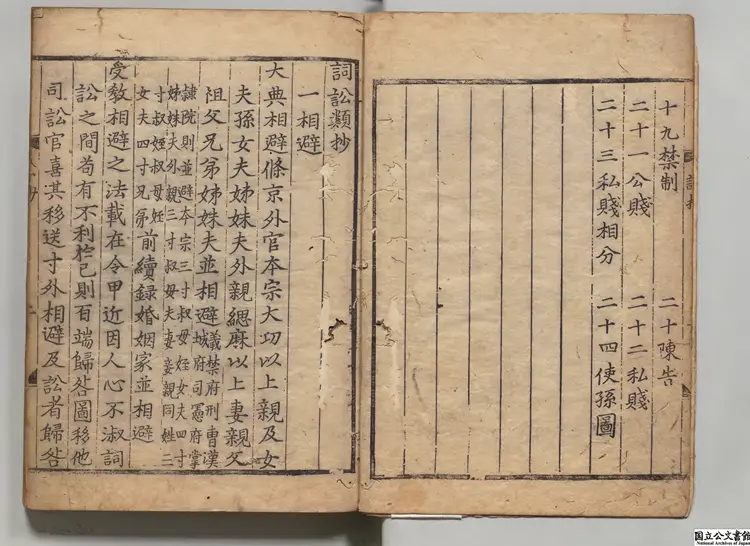 十九禁制　二十陳告
二十一公賤　二十二私賤
二十三私賤相分　二十四使孫圖
詞訟類抄
一相避
大典相避條京外官本宗大功以上親及女
夫孫女夫姊妹夫外親緦麻以上妻親父
祖父兄弟姊妹夫並相避議禁府刑曹漢城府司憲府掌
隷院則並避本宗三寸叔母姪女夫四寸
姊妹夫外親三寸叔母夫妻妾親同姓三
寸叔姪叔母姪女夫四寸兄弟前續錄婚姻家並相避
受敎相避之法載在令甲近因人心不淑詞
訟之間苟有不利於己則百端歸咎圖移他
司訟官喜其移送寸外相避及訟者歸咎
国立公文書館
National Archives of Japan